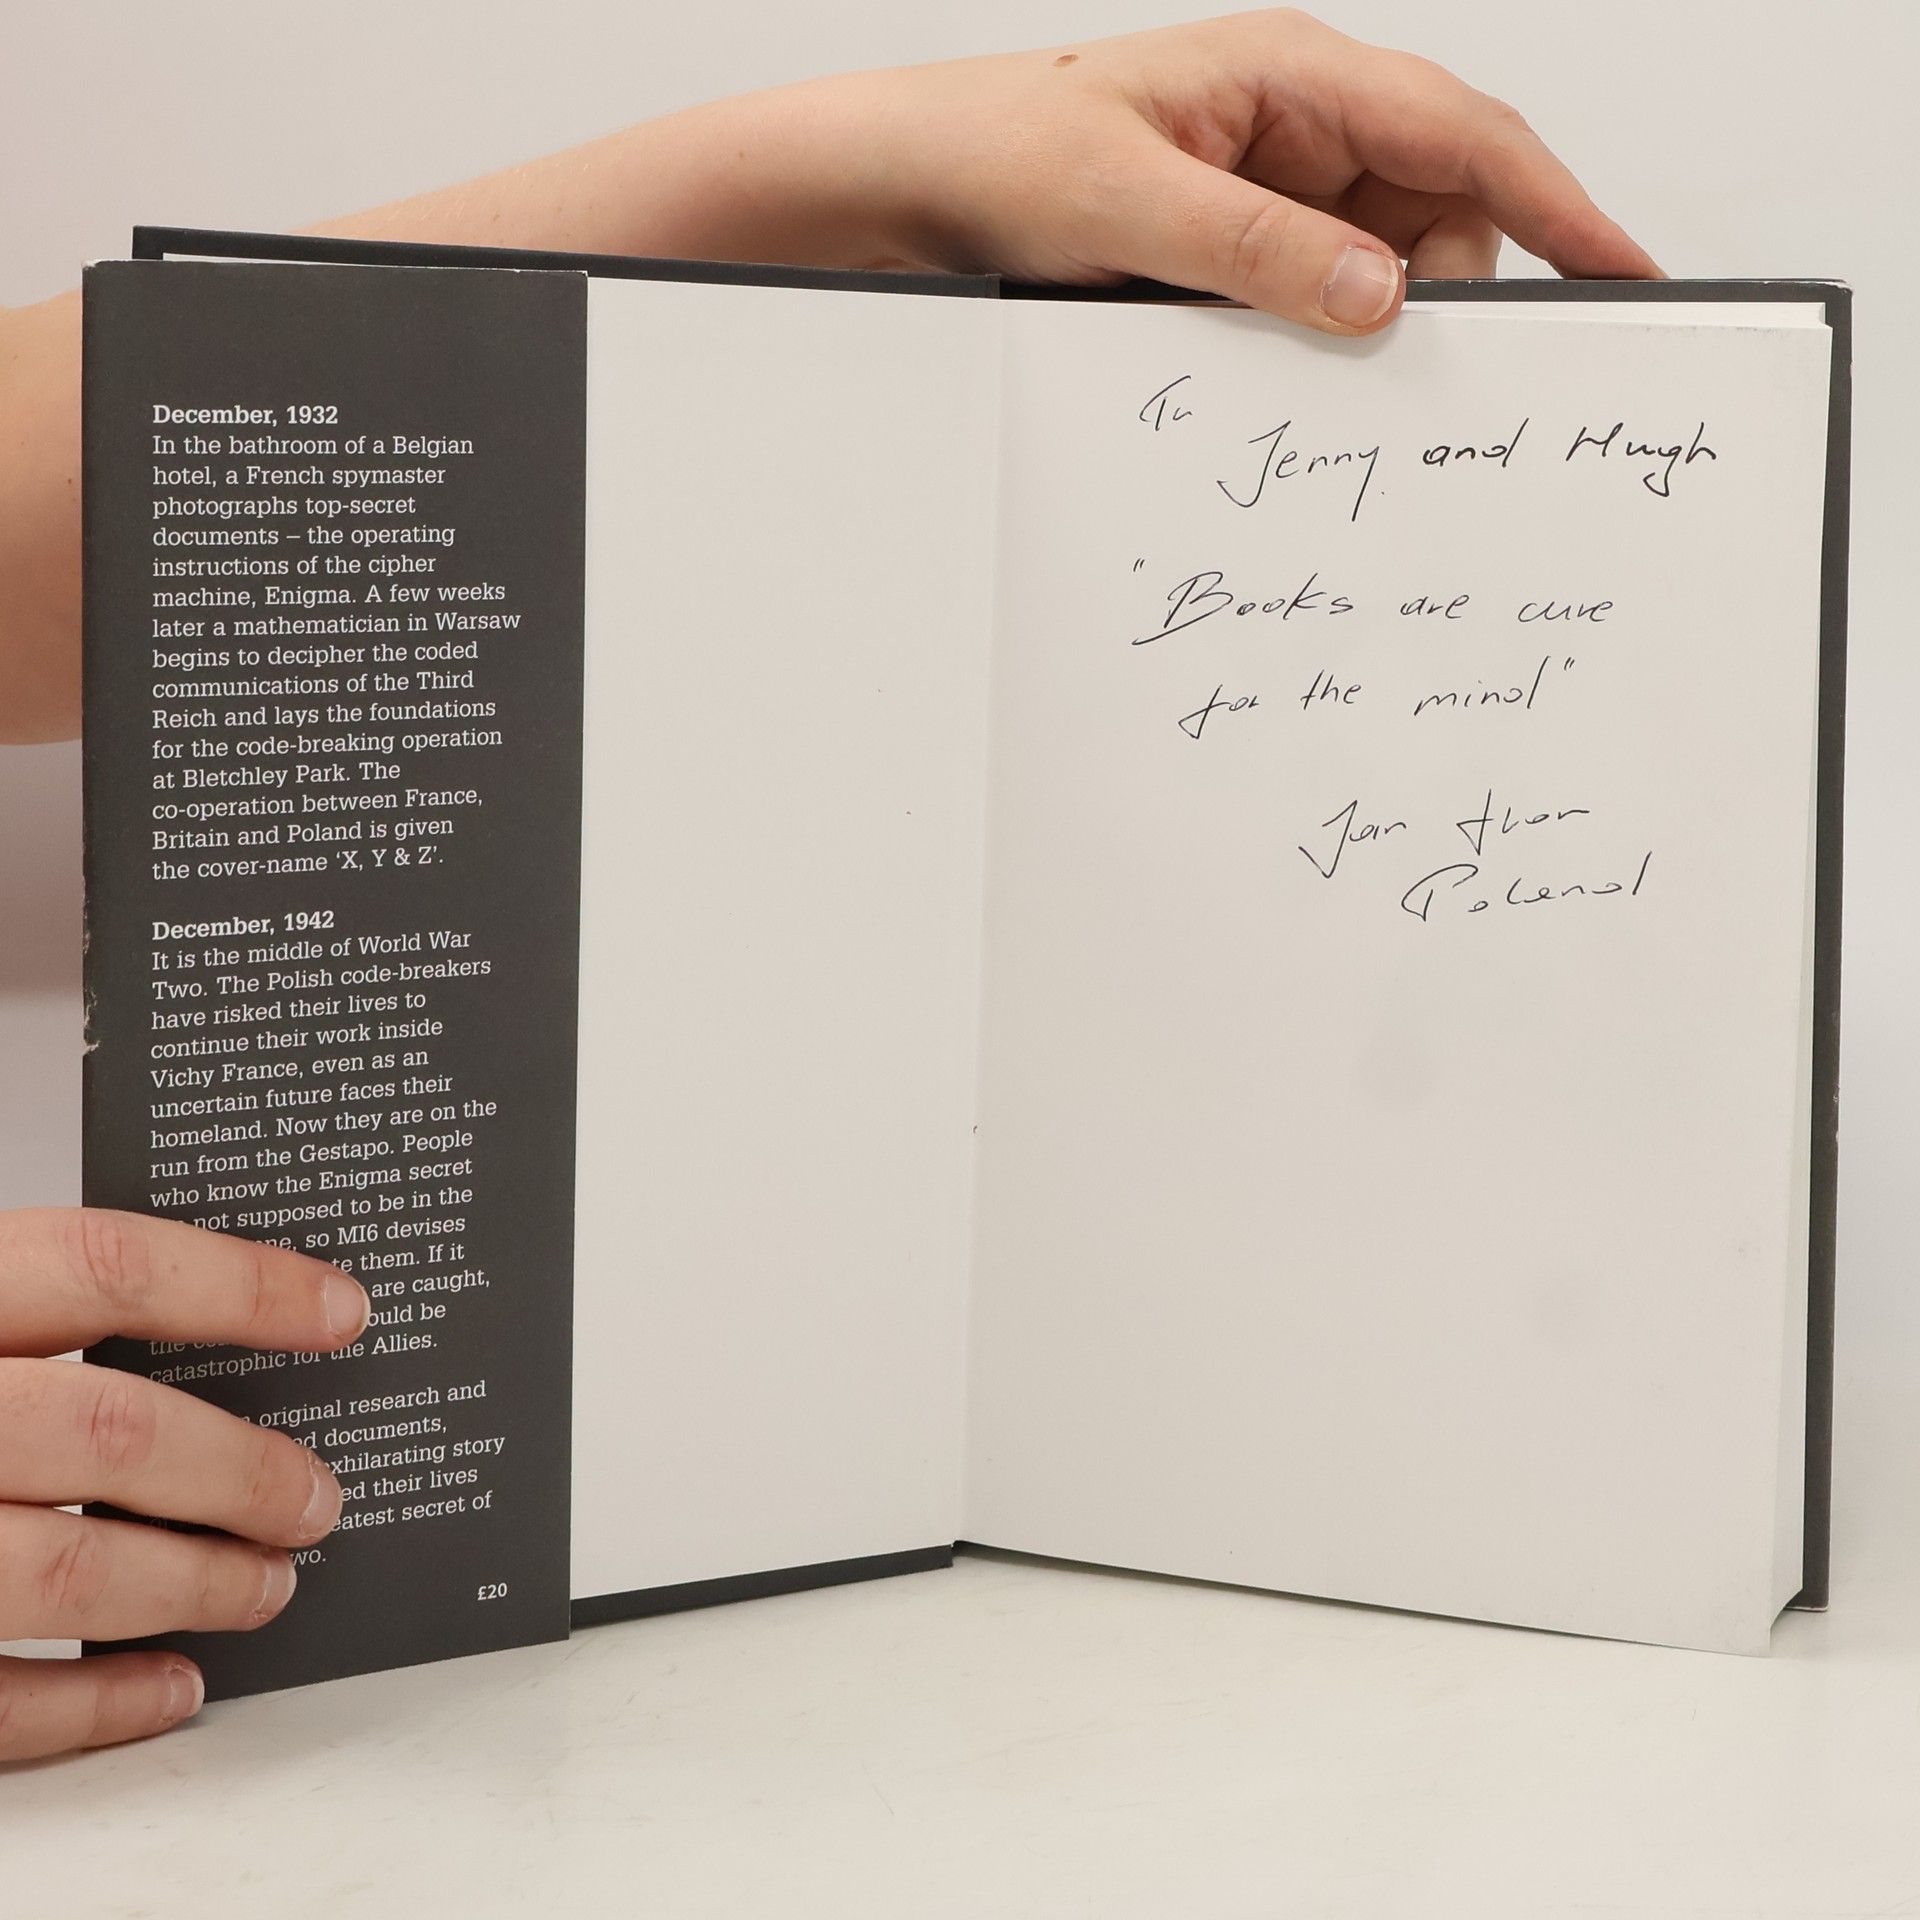 December, 1932
In the bathroom of a Belgian
hotel, a French spymaster
photographs top-secret
documents – the operating
instructions of the cipher
machine, Enigma. A few weeks
later a mathematician in Warsaw
begins to decipher the coded
communications of the Third
Reich and lays the foundations
for the code-breaking operation
at Bletchley Park. The
co-operation between France,
Britain and Poland is given
the cover-name ‘X, Y & Z’.
December, 1942
It is the middle of World War
Two. The Polish code-breakers
have risked their lives to
continue their work inside
Vichy France, even as an
uncertain future faces their
homeland. Now they are on the
run from the Gestapo. People
who know the Enigma secret
not supposed to be in the
so MI6 devises
them. If it
are caught,
be
the
catastrophic for the Allies.
original research and
documents,
story
their lives
secret of
£20
To
Jenny and Hugh
"Books are cure
for the mind"
Jan from
Poland